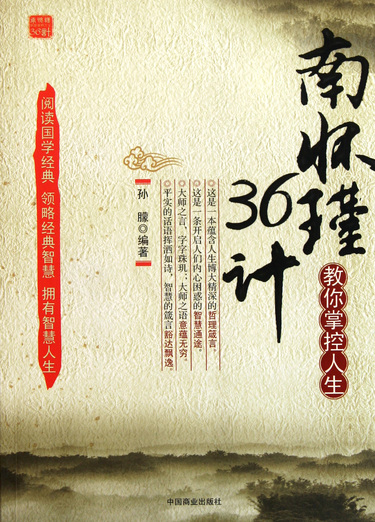 南怀瑾
36计
教你掌控人生
◎这是一本蕴含人生博大精深的哲理箴言。
◎这是一条开启人们内心困惑的智慧通途。
◎大师之言,字字珠玑;大师之语意蕴无穷。
◎平实的话语挥洒如诗,智慧的箴言豁达飘逸。
孙朦◎编著
阅读国学经典 领略经典智慧 拥有智慧人生
南怀瑾
36计
中国商业出版社